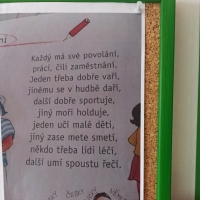 ní
Každý má své povolání,
práci, čili zaměstnání.
Jeden třeba dobře vaří,
jinému se v hudbě daří,
další dobře sportuje,
jiný moři holduje,
jeden učí malé děti,
jiný zase mete smetí,
někdo třeba lidi léčí,
další umí spoustu řečí.
ČESKY